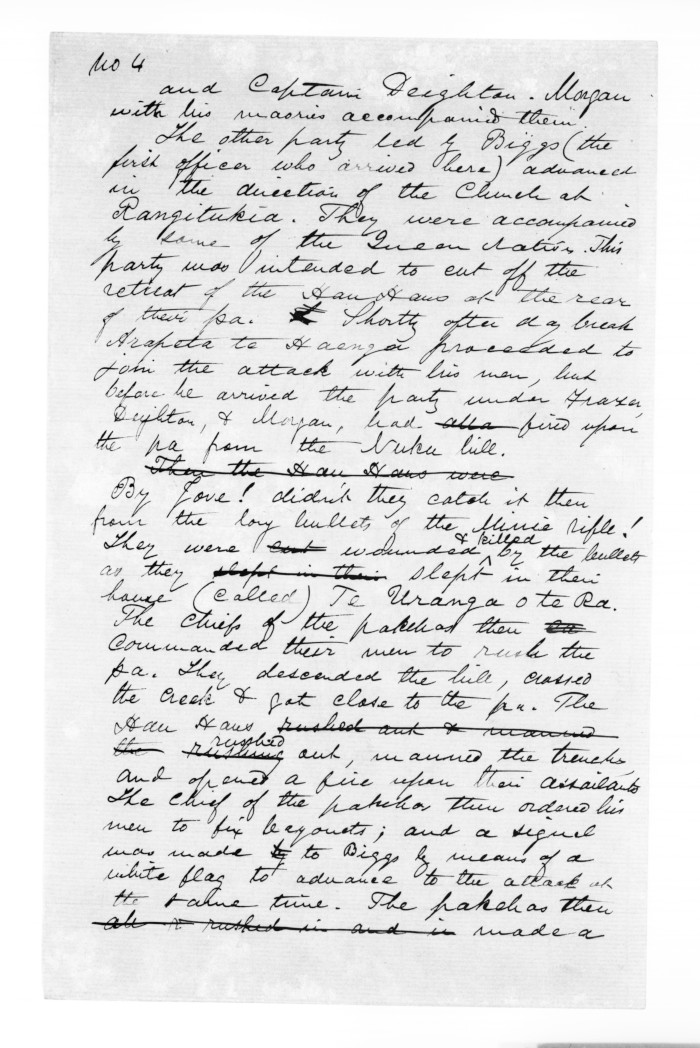 No 4
and Captain Deighton. Morgan
with his maories accompanied them.
The other party led by Biggs (the
first officer who arrived here) advanced
in the direction of the Church at
Rangitukia. They were accompanied
by some of the Queen Natives. This
party was intended to cut off the
retreat of the Hau Haus at the rear
of their pa. Shortly after day break
Arapeta te Haenga proceeded to
join the attack with his men, but
before he arrived the party under Frazer,
Deighton, & Morgan, had alla fired upon
the pa from the Nuku hill.
Then the Hau Haus were
By Jove! didn't they catch it then
from the long bullets of the Minie rifle!
They were cut wounded & killed by the bullets
as they slept in their slept in their
house (called) Te Uranga o te Ra.
The chiefs of the pakehas then
commanded their men to rush the
pa. They descended the hill, crossed
the creek & got close to the pa. The
Hau Haus rushed out & manned
the rushing rushed out, manned the trenches
and opened a fire upon their assailants
The chief of the pakehas then ordered his
men to fix bayonets; and a signal
was made by to Biggs by means of a
white flag to advance to the attack at
the same time. The pakehas then
all & rushed in and in made a